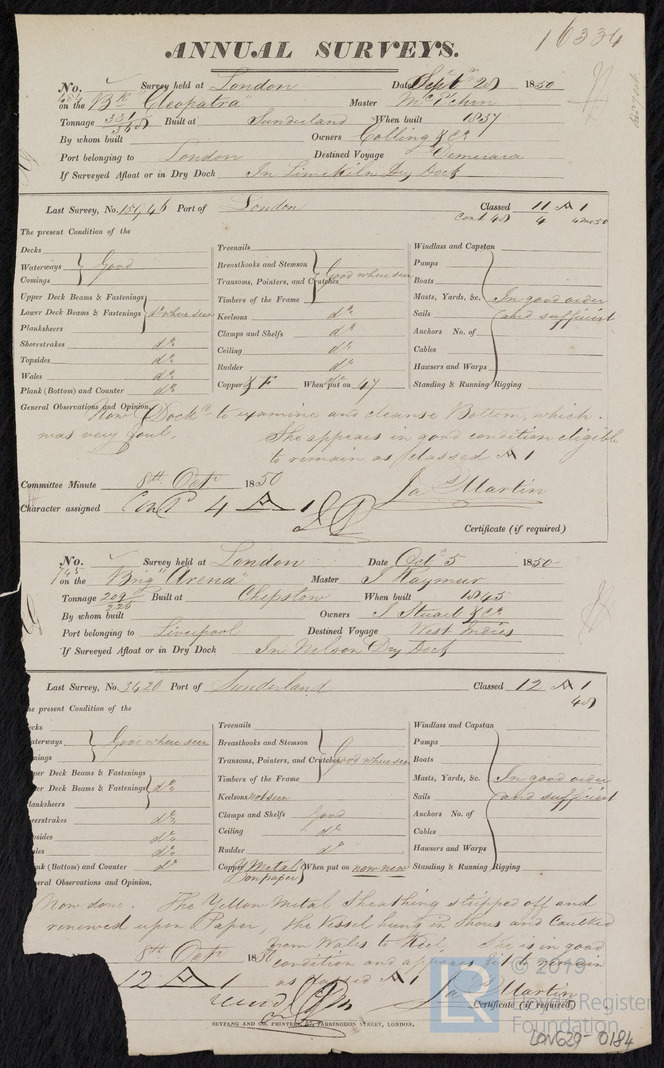 16334
ANNUAL SURVEYS.
No. Survey held at London Date Sept 28 1850
on the Bk "Cleopatra" Master
Tonnage 331 Built at Sunderland When built 1837
By whom built Owners Colling & Co
Port belonging to London Destined Voyage Demerara
If Surveyed Afloat or in Dry Dock In Limekiln Dry Dock
Last Survey, No. 15946 Port of London Classed 11 A 1
Cont 48 4 4mo50
The present Condition of the
Decks
Waterways Good
Comings
Upper Deck Beams & Fastenings
Lower Deck Beams & Fastenings Do where seen
Planksheers
Sheerstrakes do
Topsides do
Wales do
Plank (Bottom) and Counter do
Treenails
Breasthooks and Stemson
Transoms, Pointers, and Crutches Good where seen
Timbers of the Frame
Keelsons do
Clamps and Shelfs do
Ceiling do
Rudder do
Copper Y F When put on 47
Windlass and Capstan
Pumps
Boats
Masts, Yards, &c. In good order
Sails and sufficient
Anchors No. of
Cables
Hawsers and Warps
Standing & Running Rigging
General Observations and Opinion, Now Dockd to examine and cleanse Bottom, which
was very foul, She appears in good condition eligible
to remain as classed A 1
Committee Minute 8th Octr 1850
Character assigned Contd 4 A 1
Jas Martin
Certificate (if required)
No. Survey held at London Date Oct 5 1850
on the Brig "Arena" Master J Haymur
Tonnage 209 Built at Chepstow When built 1845
225
By whom built Owners J Stuart & Co
Port belonging to Liverpool Destined Voyage West Indies
If Surveyed Afloat or in Dry Dock In Nelson Dry Dock
Last Survey, No. 3420 Port of Sunderland Classed 12 A 1
48
he present Condition of the
ecks
aterways Good where seen
mings
per Deck Beams & Fastenings
er Deck Beams & Fastenings do
lanksheers
eerstrakes do
psides do
les do
nk (Bottom) and Counter do
Treenails
Breasthooks and Stemson
Transoms, Pointers, and Crutches Good where seen
Timbers of the Frame
Keelsons not seen
Clamps and Shelfs good
Ceiling do
Rudder do
Copper Y Metal When put on now new
on paper
Windlass and Capstan
Pumps
Boats
Masts, Yards, &c. In good order
Sails and sufficient
Anchors No. of
Cables
Hawsers and Warps
Standing & Running Rigging
eral Observations and Opinion,
Now done. The Yellow Metal Sheathing stripped off and
renewed upon Paper, the Vessel hung in Shores and Caulked
from Wales to Keel, She is in good
condition and appears fit to remain
as classed A 1
8th Octr 1850
12 A 1
Jas Martin
Certificate (if required)
SEYFANG AND CO. PRINTERS, FARRINGDON STREET, LONDON.
LR
© 2019
Lloyd's Register
Foundation
LON629-0184